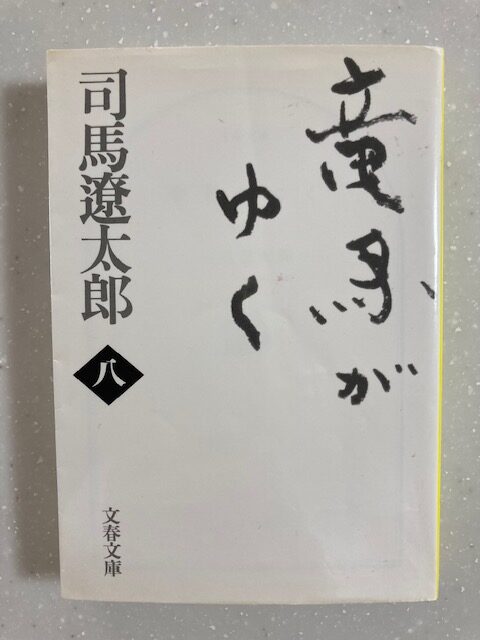 竜馬が
ゆく
司馬遼太郎
八
文春文庫